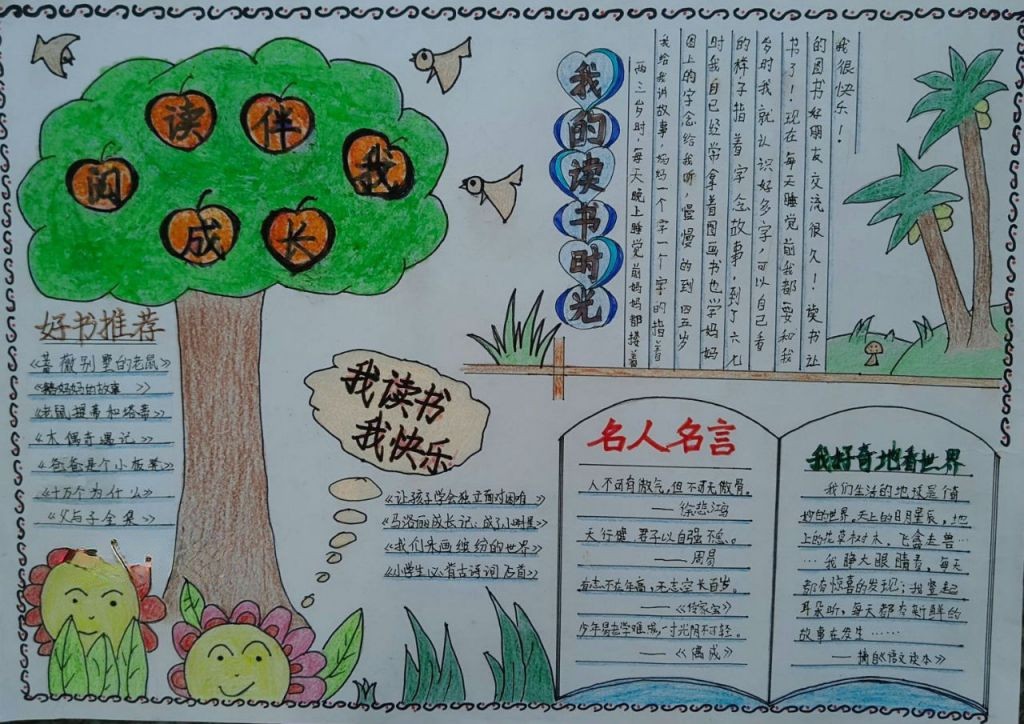 阅读伴我
成长
好书推荐
《蔷薇别墅的老鼠》
妈妈的故事 》
《老鼠提蒂和塔蒂》
《木偶奇遇记》
《爸爸是个小板凳》
《十万个为什么》
《父与子全集》
我读书
我快乐
《让孩子学会独立面对困难 》
《马洛丽成长记:成了小明星》
《我们来画缤纷的世界》
《小学生必背古诗词 70首》
我的读书时光
两三岁时,每天晚上睡觉前妈妈都搂着
我给我讲故事,妈妈一个字一个字的指着
图上的字念给我听,慢慢的到四五岁
时我自己经常拿着图画书也学妈妈
的样子指着字念故事,到了六七
岁时我就认识好多字,可以自己看
书了!现在每天睡觉前我都要和我
的图书好朋友交流很久!读书让
我很快乐!
名人名言
人不可有傲气,但不可无傲骨。
—— 徐悲鸿
天行健 君子以自强不息。
——周易
有志不在年高,无志空长百岁。
——《传家宝》
少年易老学难成,一寸光阴不可轻。
——《偶成》
我好奇地看世界
我们生活的地球是个奇
妙的世界,天上的日月星辰,地
上的花草树木,飞禽走兽…
…我睁大眼睛看,每天
都有惊喜的发现;我竖起
耳朵听,每天都有新鲜的
故事在发生……
——摘自《语文读本》